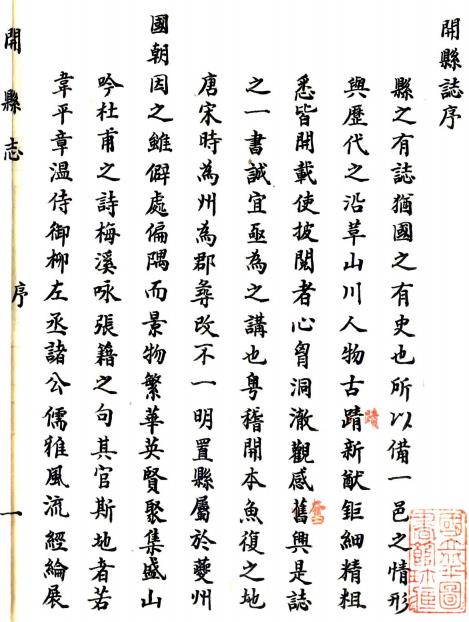 開縣誌序
縣之有誌猶國之有史也所以備一邑之情形
與歷代之沿草山川人物古蹟新猷鉅細精粗
蹟
悉皆開載使披閱者心胷洞澈觀感舊興是誌
奮
之一書誠宜亟為之講也粵稽開本魚復之地
唐宋時為州為郡彜改不一明置縣屬於夔州
國朝因之雖僻處偏隅而景物繁華英賢聚集盛山
吟杜甫之詩梅溪咏張籍之句其官斯地者若
韋平章溫侍御柳左丞諸公儒雅風流經綸展
開縣志 序 一